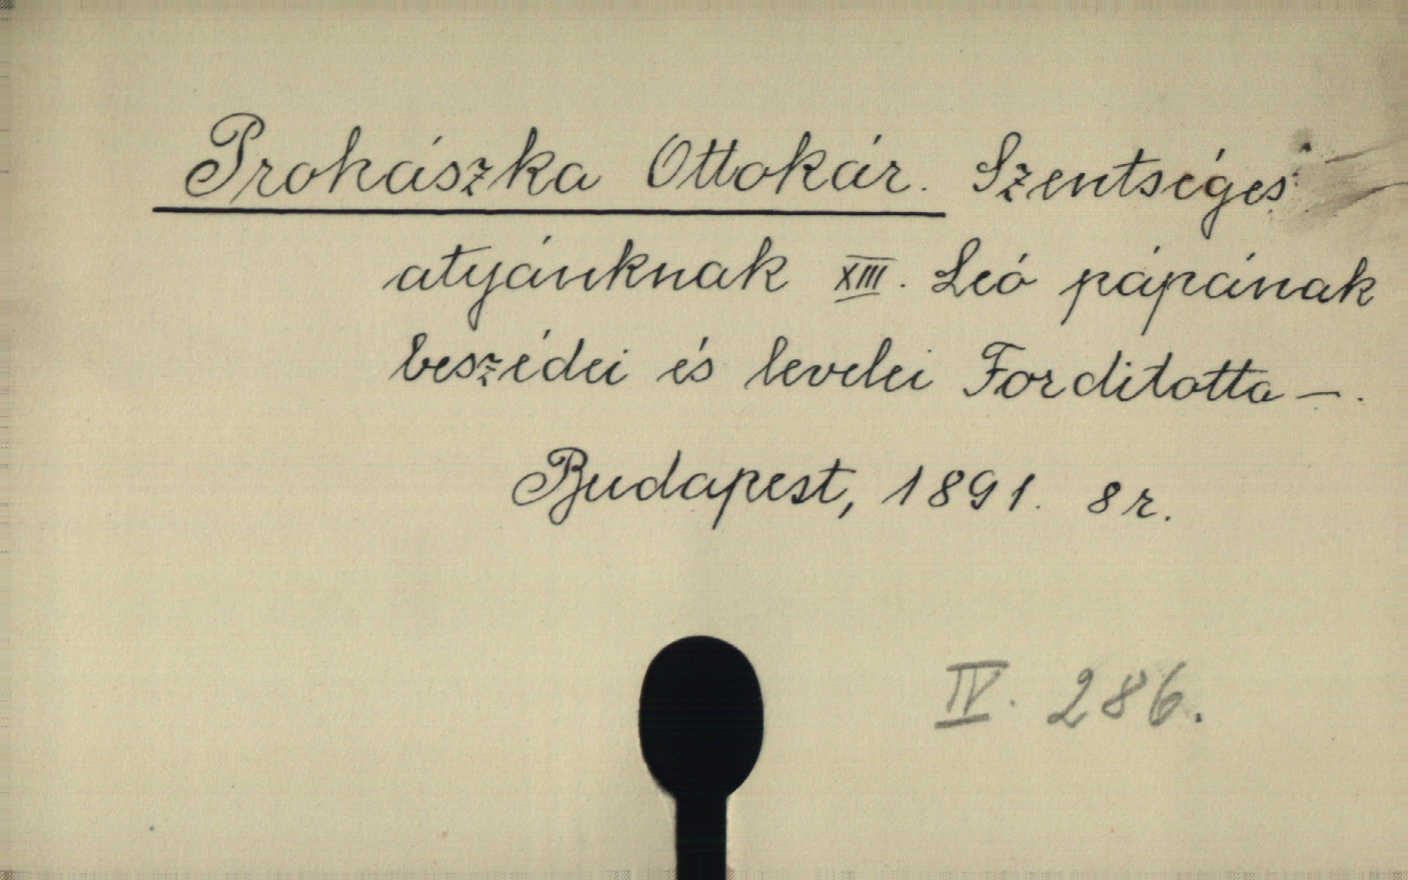 Prohászka Ottokár. Szentséges
atyánknak XIII. Leó pápának
beszédei és levelei Forditotta —.
Budapest, 1891. 8r.
IV. 286.